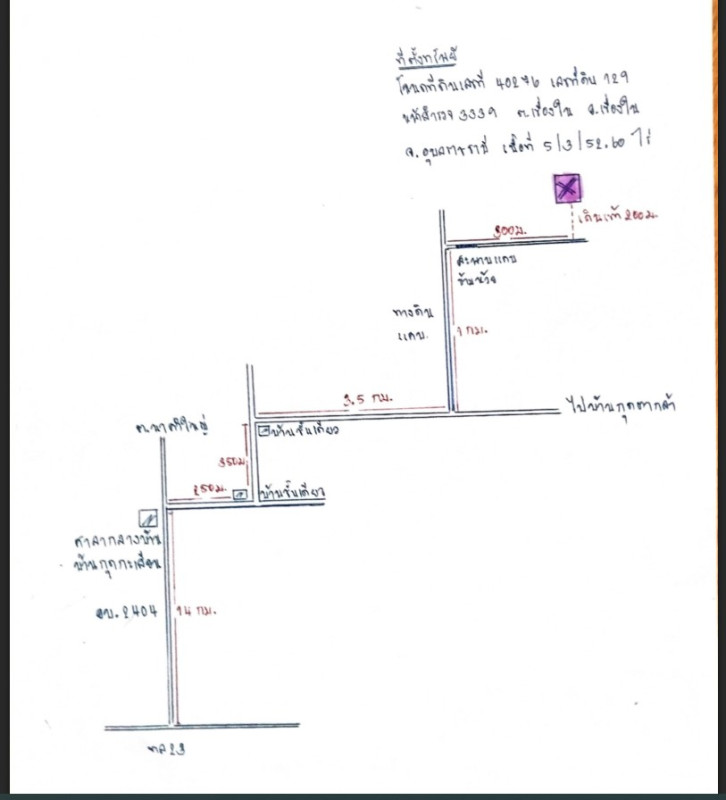 ที่ตั้งทรัพย์
โฉนดที่ดินเลขที่ 40276 เลขที่ดิน 129
หน้าสำรวจ 3339 ต.เขื่องใน อ.เขื่องใน
จ.อุบลราชธานี เนื้อที่ 5/3/52.60 ไร่
เดินเท้า 200 ม.
300 ม.
สะพานแคบ
ข้ามห้วย
ทางดิน
แคบ
1 กม.
3.5 กม.
ไปบ้านกุดตากล้า
ต.นาคำใหญ่
บ้านชั้นเดียว
350 ม
250 ม.
บ้านชั้นเดียว
ศาลากลางบ้าน
บ้านกุดกะเสียน
อบ.2404
14 กม.
ทล 23